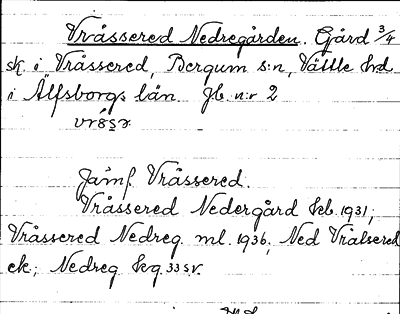 Vråssered Nedregården. Gård 3/4
sk. i Vråssered, Bergum s:n, Vättle hrd
i Älfsborgs län. Jb. n:r 2
Jämf. Vråssered.
Vråssered Nedergård kb. 1931;
Vråssered Nedreg. ml. 1936, Ned Vrålsered
ek.; Nedreg kg. 33 sv.